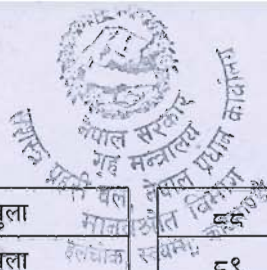 नेपाल सरकार
गृह मन्त्रालय
सशस्त्र प्रहरी बल नेपाल प्रधान कार्यालय
मानव स्रोत विभाग
हलचोक स्वयम्भू, काठमाडौं
ुला ८८
ला ८९